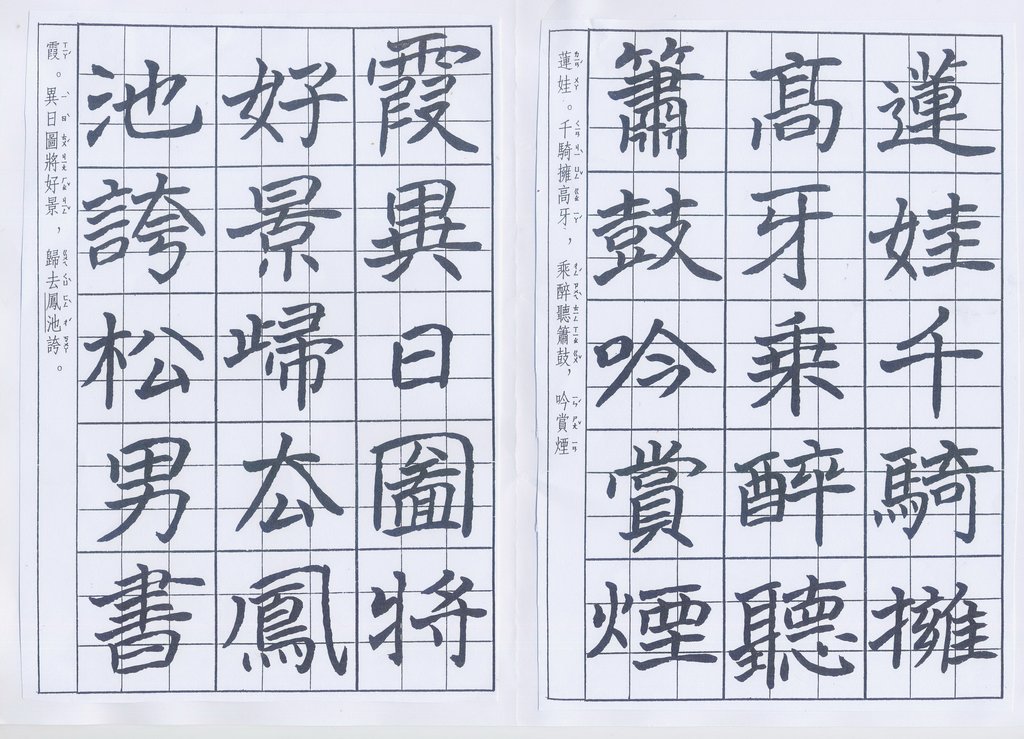 蓮娃千騎擁
髙牙乗醉聽
簫鼓吟賞煙
蓮娃。千騎擁高牙，乘醉聽簫鼓，吟賞煙
霞異日圖將
好景歸去鳳
池誇松男書
霞。異日圖將好景，歸去鳳池誇。